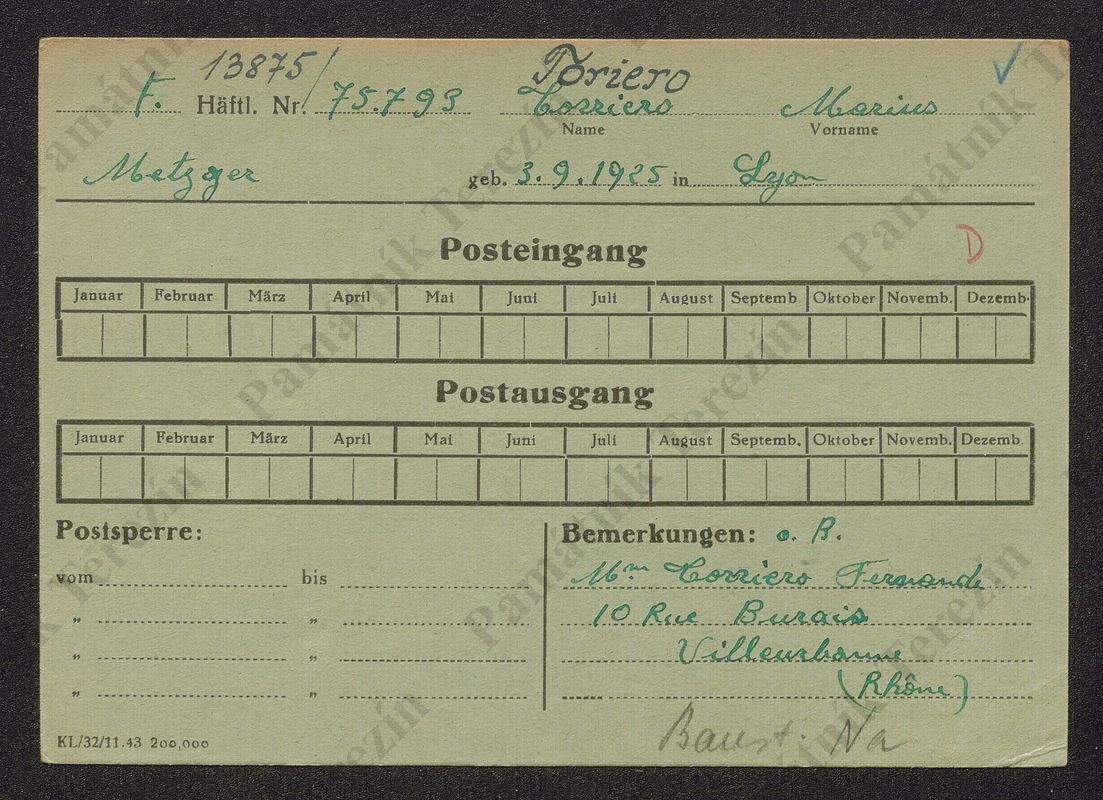 13875/ Toriero
F. Häftl. Nr. 75.793 Torriero Marius
Name Vorname
Metzger geb. 3.9.1925 in Lyon
D
Posteingang
Januar Februar März April Mai Juni Juli August Septemb. Oktober Novemb. Dezemb.
Postausgang
Januar Februar März April Mai Juni Juli August Septemb. Oktober Novemb. Dezemb.
Postsperre: Bemerkungen: o. R.
vom bis Mm Torriero Fernande
" " 10 Rue Burais
" " Villeurbanne
" " (Rhône)
KL/32/11.43 200,000 Baust. Na
Památník Terezín